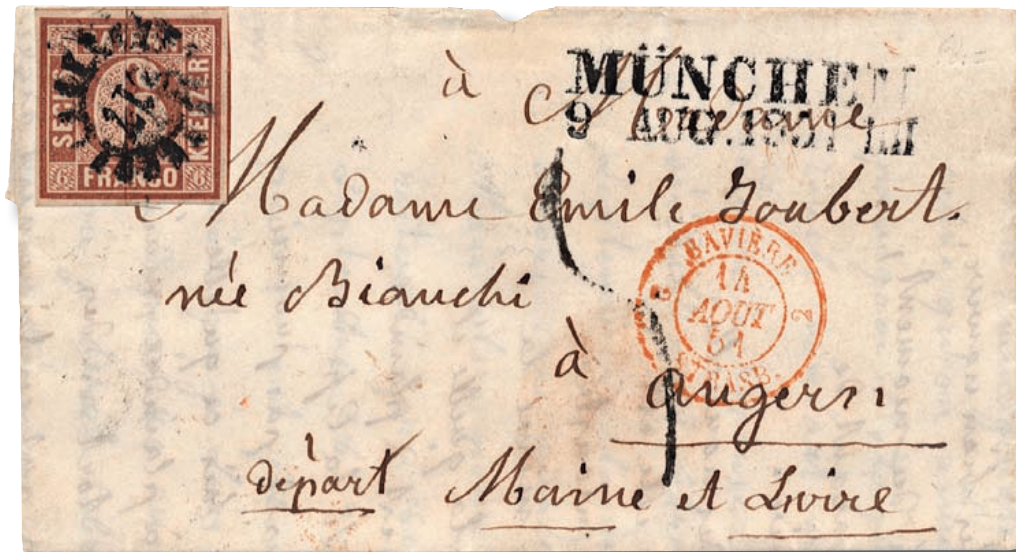 SECHS
KREUZER
6 FRANCO 6
MÜNCHEN
9 AUG. 1851 III
à Madame
Madame Emile Joubert.
née Bianchi
BAVIÈRE
14
AOUT
51
STRASB.
2 2
à
Angers
départ Maine et Loire